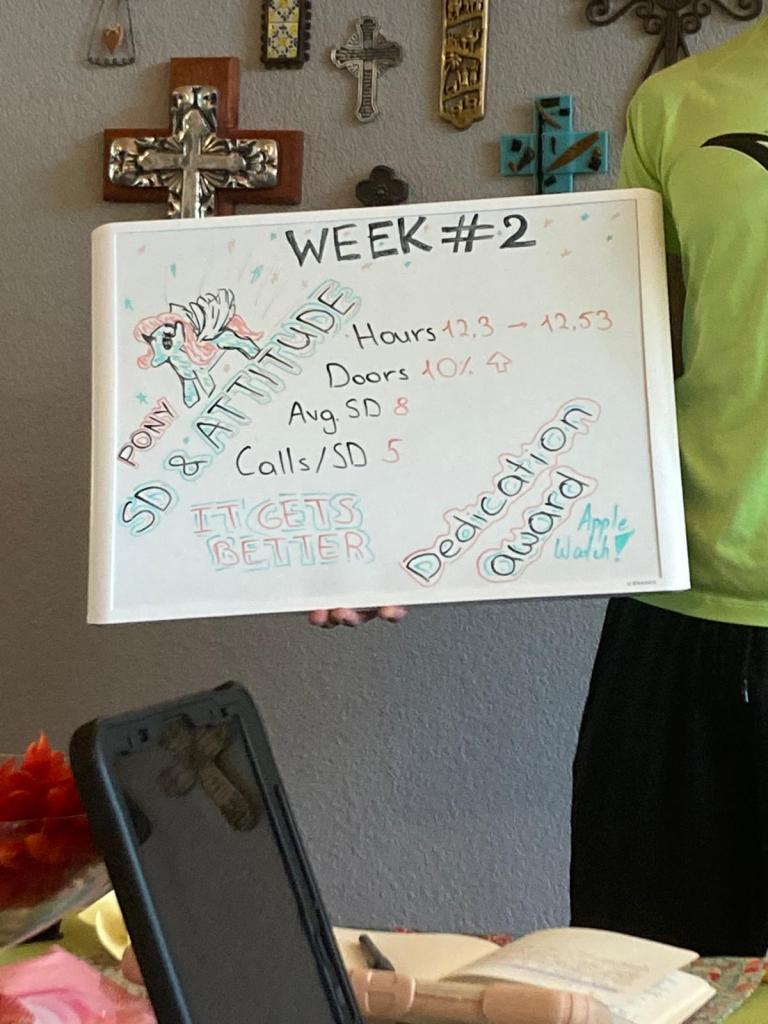 WEEK #2
PONY
SD & ATTITUDE
Hours 12,3 → 12,53
Doors 10% ⇧
Avg. SD 8
Calls/SD 5
IT GETS
BETTER
Dedication
award
Apple
Watch!